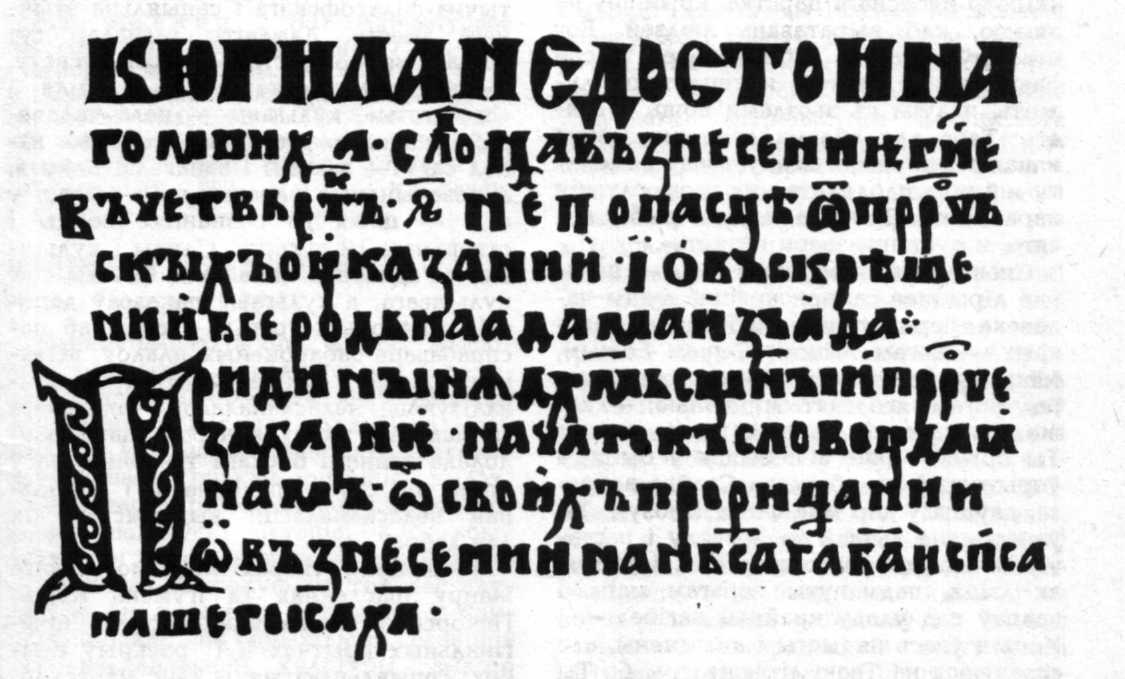 КЮРИЛАНЕДОСТОИНА
гомниха·слонавъзнесениѥгн҃е
въчетвьртъ·е҃·не҃попасцѣѿпррч҃ь
скыхъоуказании·іовъскрѣше
ниивьсероднаадамаизъада⁘
Придинынѧдх҃мьсщ҃ныипррч҃е
захариѥ·начатокъсловоудаꙗ
намъ·ѿсвоихъпрорицании
ѡвъзнесениинанб҃саг҃аб҃аисп҃са
нашегоі҃сах҃а·